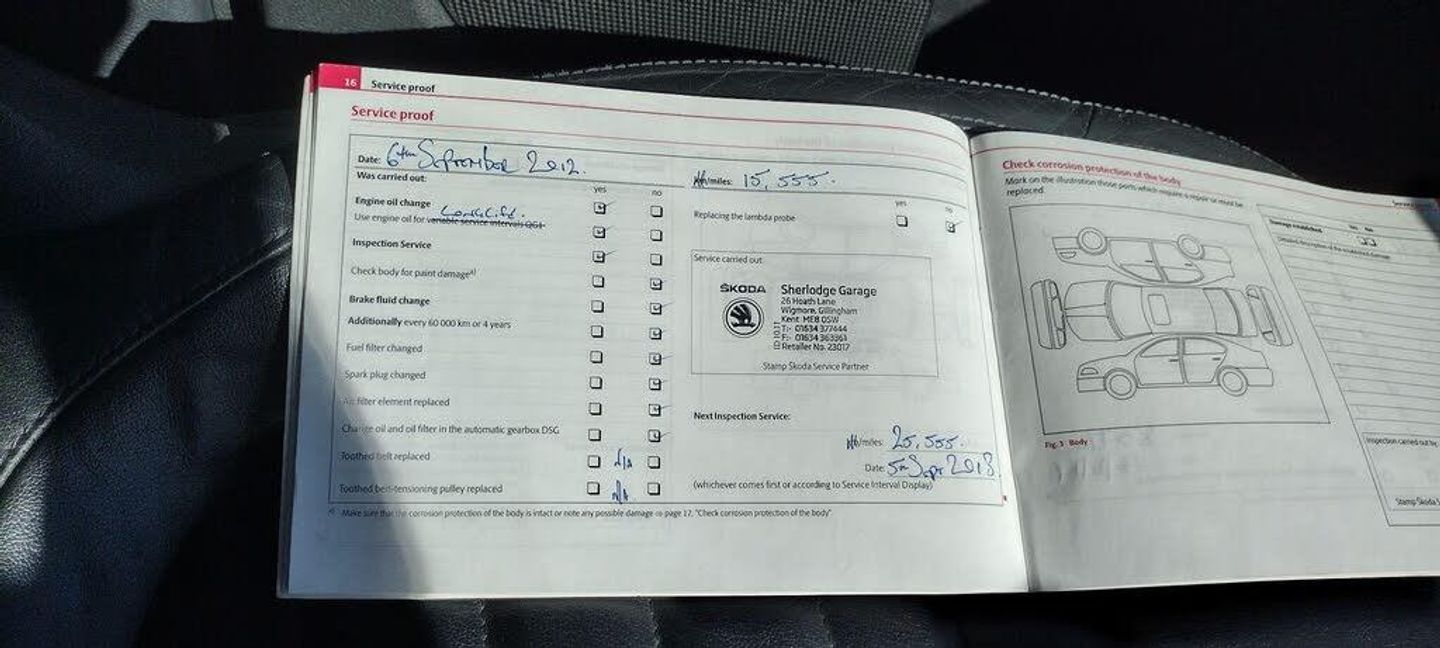 16 Service proof
Service proof
Date: 6th September 2012.
Was carried out:
yes no
Engine oil change
Longlife.
Use engine oil for variable service intervals QG1
Inspection Service
Check body for paint damage a)
Brake fluid change
Additionally every 60 000 km or 4 years
Fuel filter changed
Spark plug changed
Air filter element replaced
Change oil and oil filter in the automatic gearbox DSG
Toothed belt replaced N/A
Toothed belt-tensioning pulley replaced N/A
a) Make sure that the corrosion protection of the body is intact or note any possible damage to page 17, "Check corrosion protection of the body".
km/miles: 15,555.
yes no
Replacing the lambda probe
Service carried out
ŠKODA
Sherlodge Garage
26 Hoath Lane
Wigmore, Gillingham
Kent ME8 0SW
T:- 01634 377444
F:- 01634 363361
Retailer No. 23017
Stamp Skoda Service Partner
Next Inspection Service:
km/miles: 25,555.
Date: 5th Sept 2013
(whichever comes first or according to Service Interval Display)
Check corrosion protection of the body
Mark on the illustration those parts which require a repair or must be
replaced.
Fig. 3 Body
Damage established Yes No
Detailed description of the established damage
Inspection carried out by:
Stamp Skoda S